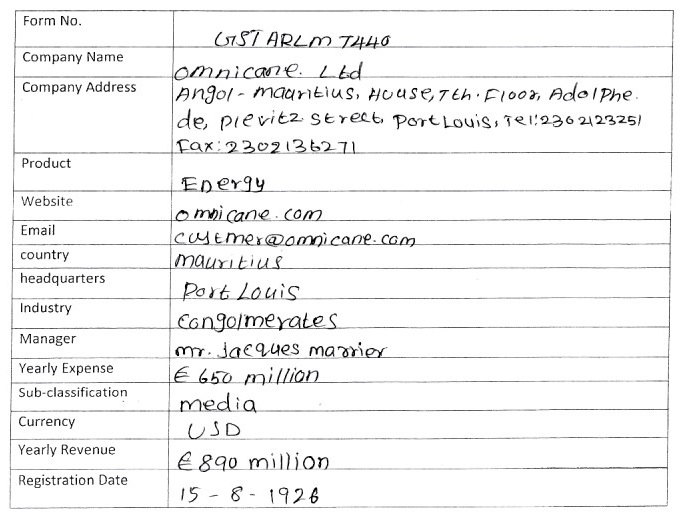 Form No. GST ARLM T440
Company Name omnicane. Ltd
Company Address Angol - mauritius, House, 7th. Floor, Adolphe.
de, plevitz street, Port Louis, Tel: 2302123251
Fax: 2302136271
Product Energy
Website omnicane.com
Email custmer@omnicane.com
country mauritius
headquarters Port Louis
Industry Congolmerates
Manager mr. Jacques marrier
Yearly Expense € 650 million
Sub-classification media
Currency USD
Yearly Revenue € 890 million
Registration Date 15 - 8 - 1926